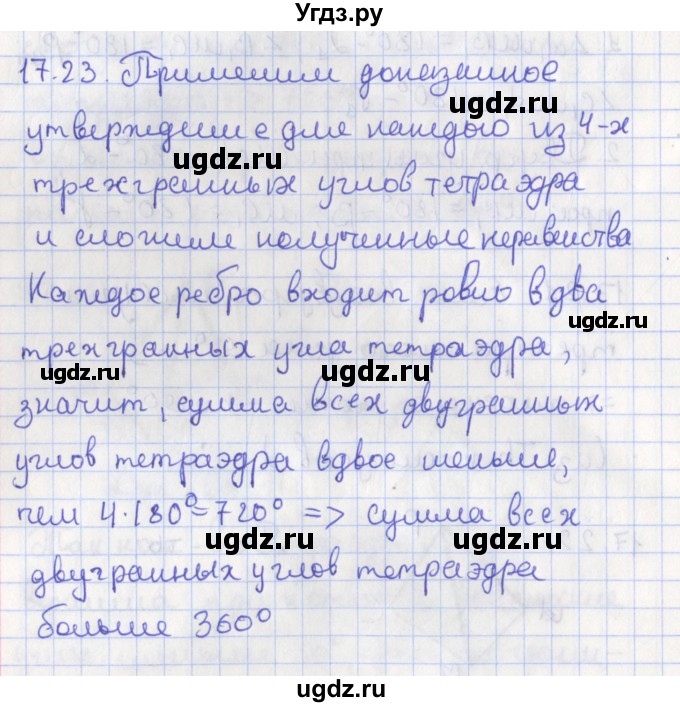 Угдз.ру
17.23. Применим доказанное
ugdz.ru
утверждение для каждого из 4-х
ugdz.ru ugdz.ru
трехгранных углов тетраэдра
и сложим полученные неравенства
ugdz.ru
Каждое ребро входит ровно в два
трехгранных угла тетраэдра,
ugdz.ru ugdz.ru
значит, сумма всех двугранных
углов тетраэдра вдвое меньше,
ugdz.ru
чем 4·180°=720° => сумма всех
ugdz.ru ugdz.ru
двугранных углов тетраэдра
больше 360°
ugdz.ru
ugdz.ru